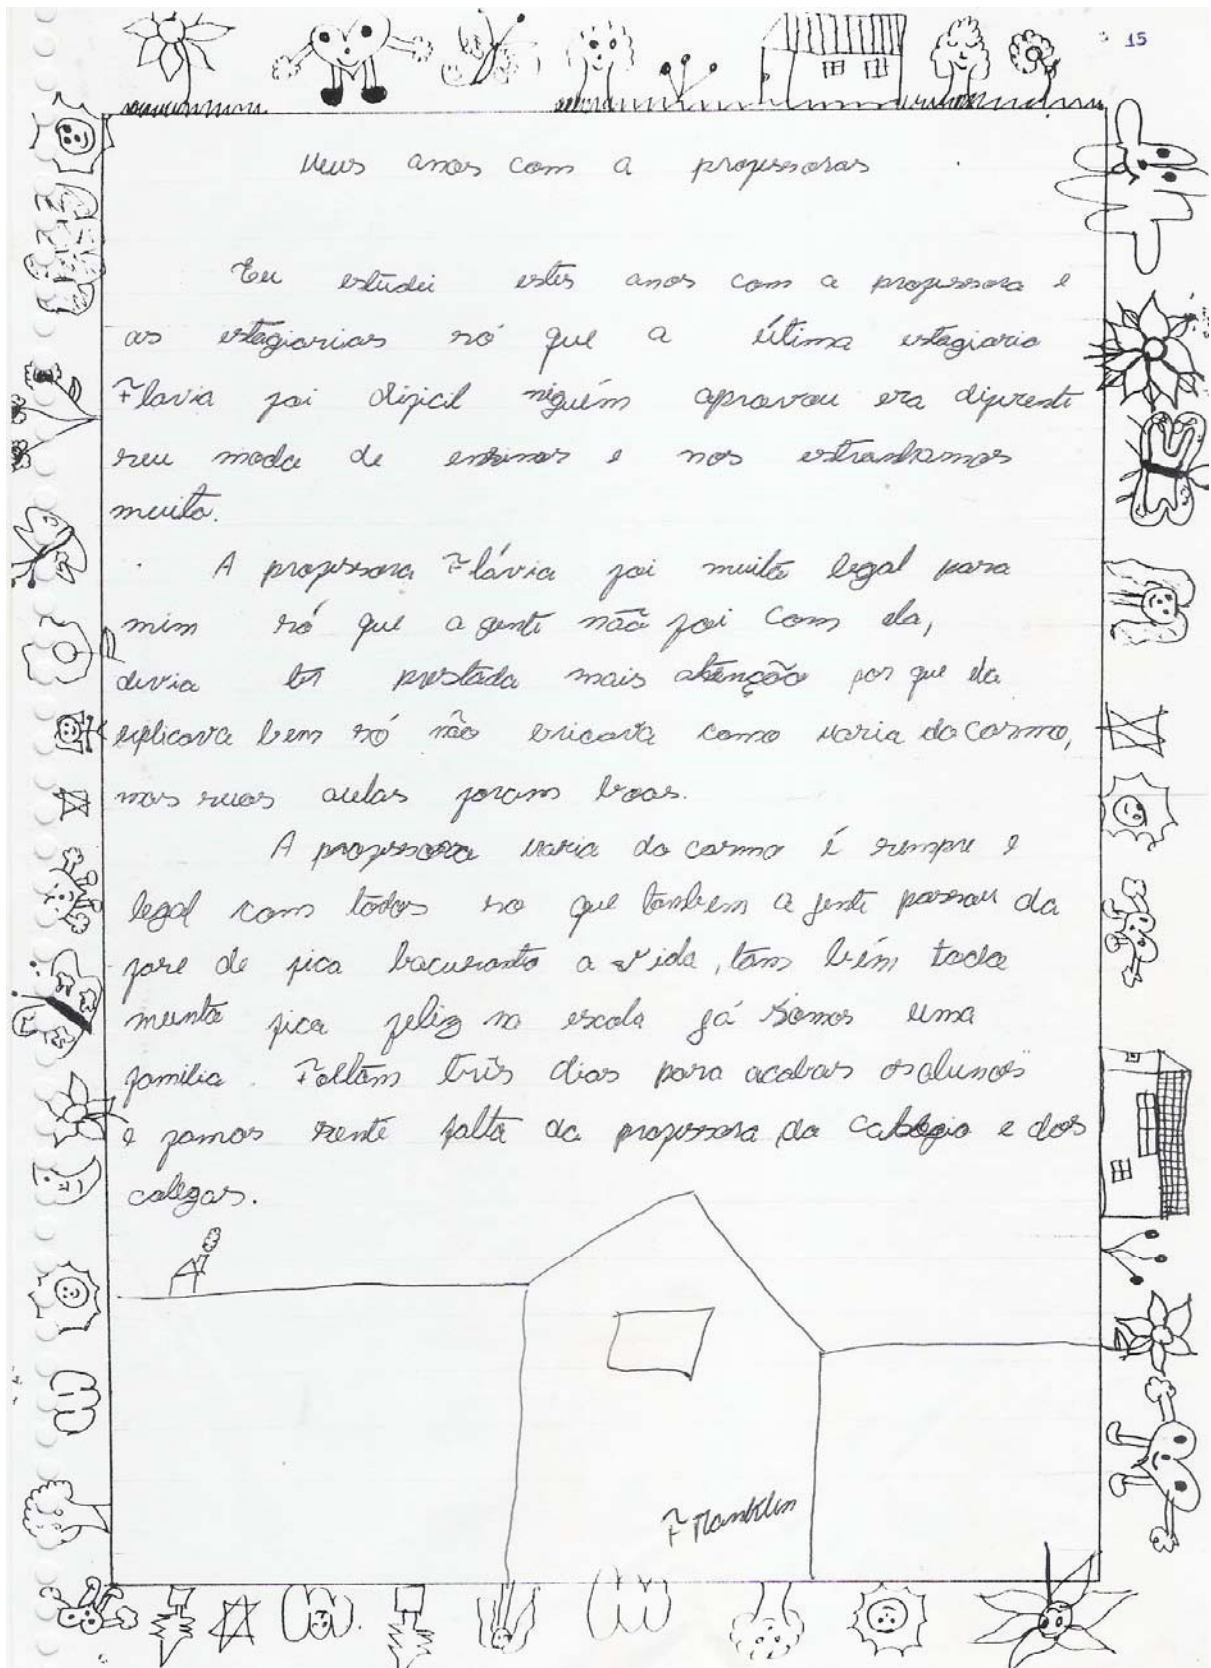 15
Meus anos com a professoras
Eu estudei estes anos com a professora e
as estagiarias só que a útima estagiaria
Flavia foi dificil niguém aprovou era difirente
seu modo de ensinar e nos estranhamos
muito.
A professora Flávia foi muito legal para
mim só que a gente não foi com ela,
divia ter prestada mais atenção por que ela
esplicava bem só não bricava como maria do Carmo,
mas suas aulas foram boas.
A professora maria do carmo é sempre e
legal com todos so que tambem a jente passou da
fase de fica bacuranto a vida, tam bém toda
munto fica feliz na escola já somos uma
familia. Faltam três dias para acabar os alunos
e famos sente falta da professora, do colégio e dos
colegas.
Franklin